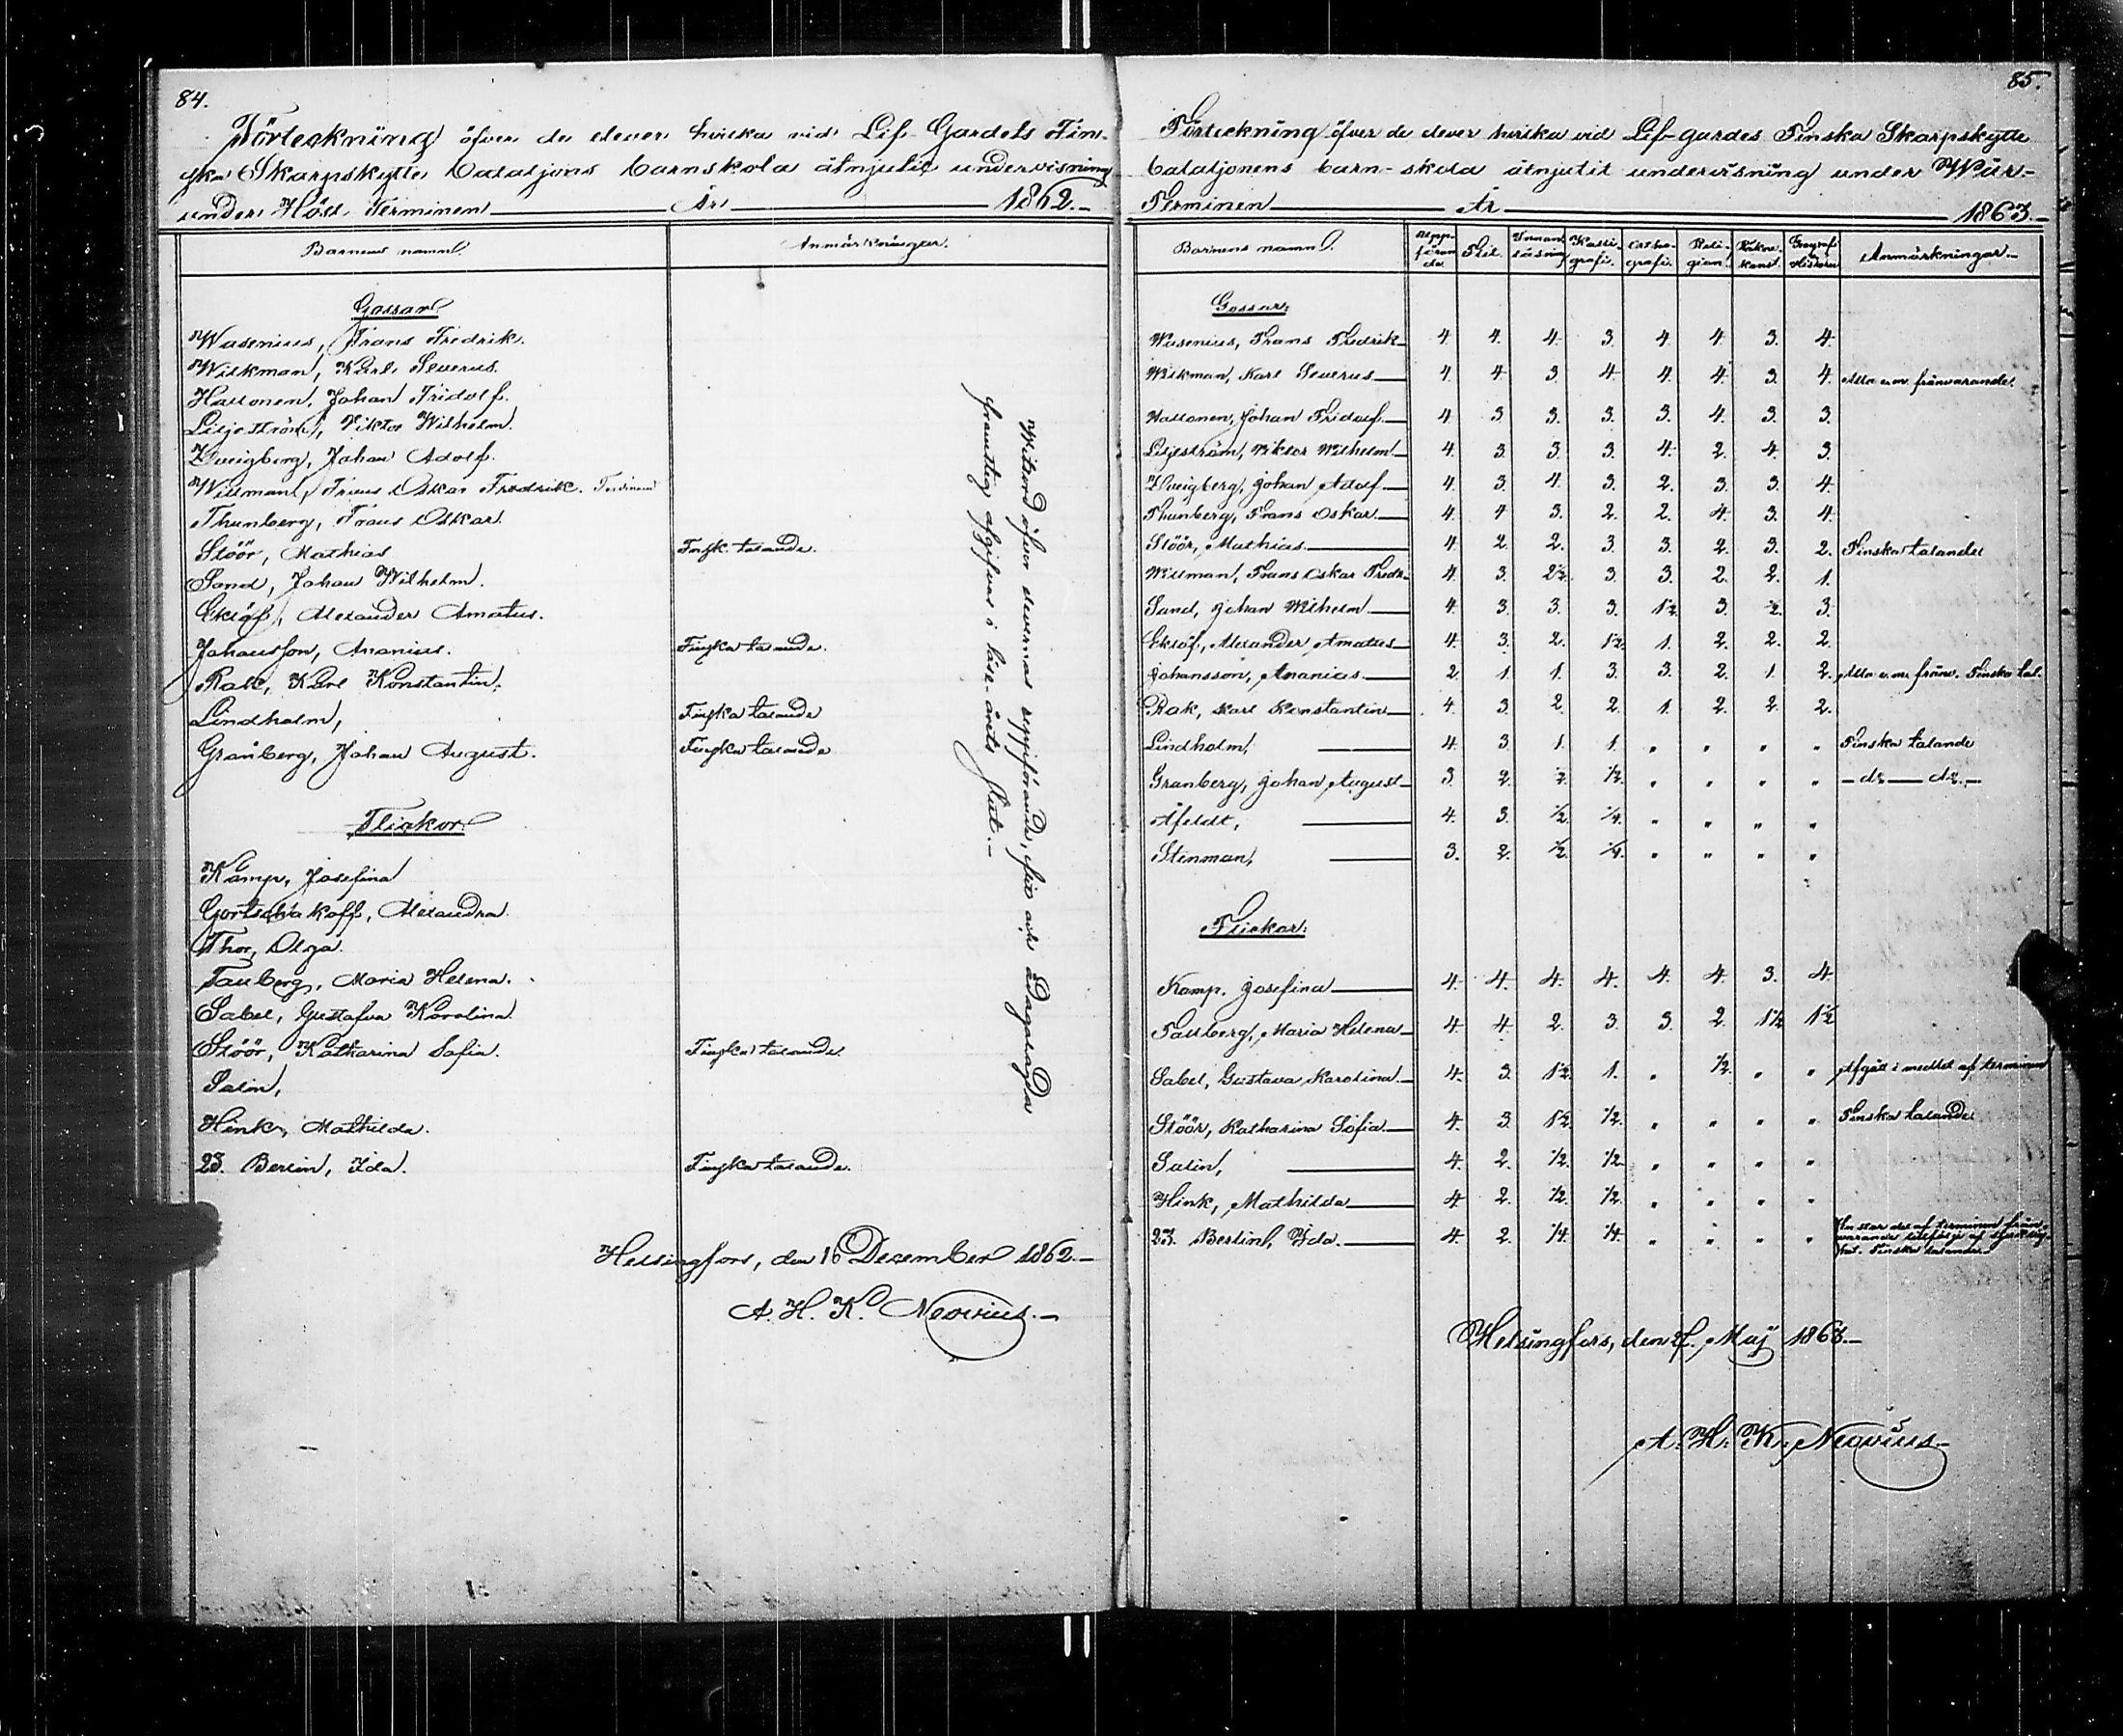 84.
Förteckning öfver de elever hvilka vid Lif-Gardets Fin-
ska Skarpskytte Bataljons barnskola åtnjutit undervisning
under Höst Terminen År 1862.-
Barnens namn. Anmärkningar.
Gossar
Wasenius, Frans Fredrik.
Wilkman, Karl Severus.
Hallonen, Johan Fridolf.
Liljeström, Viktor Wilhelm.
Zweigberg, Johan Adolf.
Willman, Frans Oskar Fredrik. Ferdinand
Thunberg, Frans Oskar.
Stöör, Mathias Finsk. talande.
Sand, Johan Wilhelm.
Eklöf, Alexander Amatus.
Johansson, Ananias. Finska talande.
Rak, Karl Konstantin.
Lindholm, Finska talande
Granberg, Johan August. Finska talande
Flickor
Kamp, Josefina
Gortschakoff, Alexandra.
Thor, Olga.
Tauberg, Maria Helena.
Sabel, Gustafva Karolina.
Stöör, Katharina Sofia. Finska talande.
Salin,
Hink, Mathilda.
23. Berlin, Ida. Finska talande.
Witsord öfver elevernas uppförande, flit och
framsteg afgifvas i läse-årets slut.-
Helsingfors, den 16 December 1862.-
A. H. K. Neovius.-
85.
Förteckning öfver de elever hvilka vid Lif-gardes Finska Skarpskytte
bataljonens barn-skola åtnjutit undervisning under Wår-
Terminen År 1863.-
Barnens namn. Uppförande. Flit. Innanläsning Kalligrafi. Orthografi. Religion. Räknekonst. Geografi Historia Anmärkningar.-
Gossar:
Wasenius, Frans Fredrik 4. 4. 4. 3. 4. 4. 3. 4.
Wilkman, Karl Severus 4. 4. 3. 4. 4. 4. 3. 4. Alla e.m. frånvarande.
Hallonen, Johan Fridolf 4. 3. 3. 3. 3. 4. 3. 3.
Liljeström, Viktor Wilhelm 4. 3. 3. 3. 4. 2. 4. 3.
Zweigberg, Johan Adolf 4. 3. 4. 3. 2. 3. 3. 4.
Thunberg, Frans Oskar 4. 4. 3. 2. 2. 4. 3. 4.
Stöör, Mathias 4. 2. 2. 3. 3. 2. 3. 2. Finska talande
Willman, Frans Oskar Fredr. 4. 3. 2½. 3. 3. 2. 2. 1.
Sand, Johan Wilhelm 4. 3. 3. 3. 1½. 3. 2. 3.
Eklöf, Alexander Amatus 4. 3. 2. 1½. 1. 2. 2. 2.
Johansson, Ananias 2. 1. 1. 3. 3. 2. 1. 2. Alla e.m. frånv. Finska tal.
Rak, Karl Konstantin 4. 3. 2. 2. 1. 2. 2. 2.
Lindholm, 4. 3. 1. 1. " " " " Finska talande
Granberg, Johan August 3. 2. ½. ½. " " " " - do - do.-
Åfeldt, 4. 3. ½. ¼. " " " "
Stenman, 3. 2. ½. ¼. " " " "
Flickor:
Kamp, Josefina 4. 4. 4. 4. 4. 4. 3. 4.
Tauberg, Maria Helena 4. 4. 2. 3. 3. 2. 1½ 1½
Sabel, Gustava Karolina 4. 3. 1½. 1. " ½. " " Afgått i medlet af terminen
Stöör, Katharina Sofia 4. 3. 1½. ½. " " " " Finska talande
Salin, 4. 2. ½. ½. " " " "
Hink, Mathilda 4. 2. ½. ½. " " " "
23. Berlin, Ida. 4. 2. ¼. ¼. " " " " En stor del af terminen från-
varande tillfölje af sjuklig-
het. Finska talande.
Helsingfors, den Maj 1863.-
A. H. K. Neovius.-